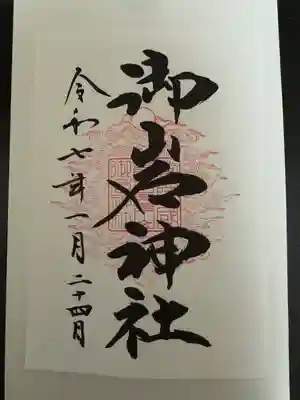 御岩神社
令和七年一月二十四日